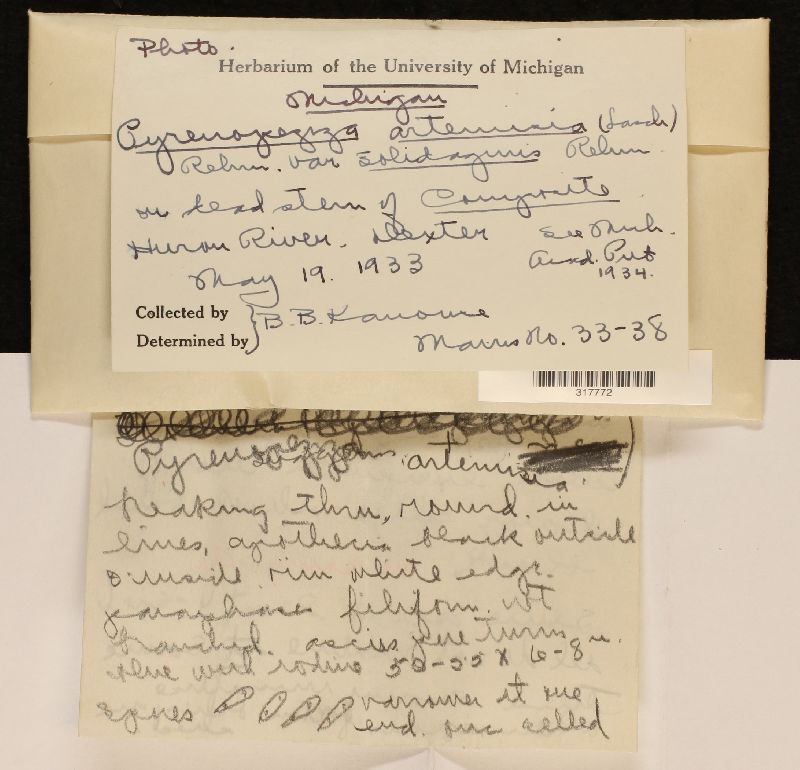 Photo.
Herbarium of the University of Michigan
Michigan
Pyrenopeziza artemisia (Lasch)
Rehm. var solidaginis Rehm.
on dead stem of Composite
Huron River. Dexter See Mich.
May 19. 1933 Acad. Pub
1934.
Collected by
Determined by B. B. Kanouse
No. 33-38
317772
Pyrenopeziza artemisia
breaking thru, round. in
lines, apothecia black outside
inside rim white edge.
paraphases filiform. not
branched. ascus pore turns
blue with iodine 50-55 x 6-8 u.
spores narrower at one
end. one celled